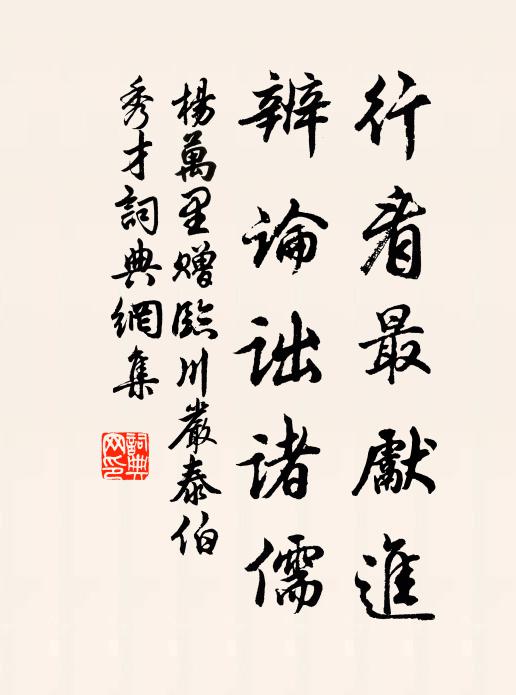 行看最獻進
辨論詘諸儒
楊萬里贈臨川嚴泰伯
秀才詞典網集
詞典網